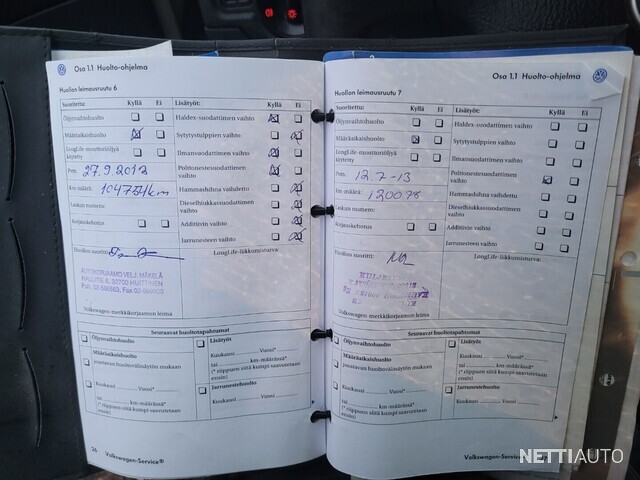 Osa 1.1 Huolto-ohjelma
Huollon leimausruutu 6
Suoritettu: Kyllä Ei Lisätyöt: Kyllä Ei
Öljynvaihtohuolto Haldex-suodattimen vaihto
Määräaikaishuolto Sytytystulppien vaihto
LongLife-moottoriöljyä käytetty Ilmansuodattimen vaihto
Pvm. 27.9.2012 Polttonestesuodattimen vaihto
Km-määrä: 104757/km Hammashihna vaihdettu
Laskun numero: Dieselhiukkassuodattimen vaihto
Korjauskehotus Additiivin vaihto
Jarrunesteen vaihto
Huollon suoritti: LongLife-liikkumisturva:
AUTOKORJAAMO VELJ. MÄKELÄ
32700 HUITTINEN
Volkswagen-merkkikorjaamon leima
Seuraavat huoltotapahtumat
Öljynvaihtohuolto Lisätyöt
Määräaikaishuolto Kuukausi Vuosi*
joustavan huoltovälinäytön mukaan tai km-määrässä*
(* riippuen siitä kumpi saavutetaan ensin)
Kuukausi Vuosi* Jarrunestehuolto
tai km-määrässä* Kuukausi Vuosi
(* riippuen siitä kumpi saavutetaan ensin)
26 Volkswagen-Service®
Osa 1.1 Huolto-ohjelma
Huollon leimausruutu 7
Suoritettu: Kyllä Ei Lisätyöt: Kyllä Ei
Öljynvaihtohuolto Haldex-suodattimen vaihto
Määräaikaishuolto Sytytystulppien vaihto
LongLife-moottoriöljyä käytetty Ilmansuodattimen vaihto
Pvm. 12.7-13 Polttonestesuodattimen vaihto
Km-määrä: 120098 Hammashihna vaihdettu
Laskun numero: Dieselhiukkassuodattimen vaihto
Korjauskehotus Additiivin vaihto
Jarrunesteen vaihto
Huollon suoritti: LongLife-liikkumisturva:
Volkswagen-merkkikorjaamon leima
Seuraavat huoltotapahtumat
Öljynvaihtohuolto Lisätyöt
Määräaikaishuolto Kuukausi Vuosi*
joustavan huoltovälinäytön mukaan tai km-määrässä*
(* riippuen siitä kumpi saavutetaan ensin)
Kuukausi Vuosi* Jarrunestehuolto
tai km-määrässä* Kuukausi Vuosi
(* riippuen siitä kumpi saavutetaan ensin)
Volkswagen-Service
NETTIAUTO